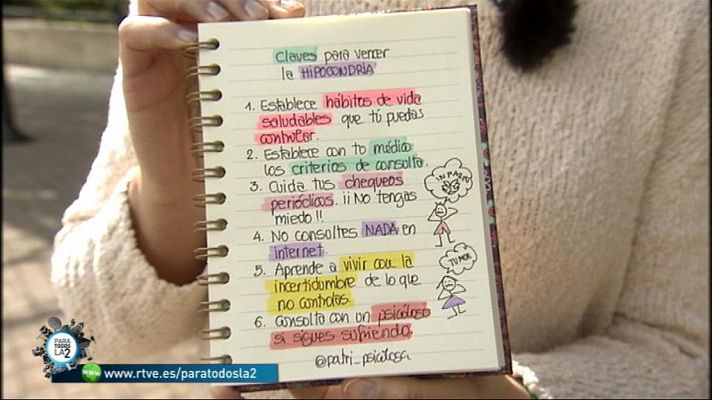 Claves para vencer
la HIPOCONDRÍA
1. Establece hábitos de vida
saludables que tú puedas
controlar.
2. Establece con tu médico
los criterios de consulta.
3. Cuida tus chequeos
periódicos. ¡¡No tengas
miedo!!
4. No consultes NADA en
internet.
5. Aprende a vivir con la
incertidumbre de lo que
no controlas.
6. Consulta con un psicólogo
si sigues sufriendo.
@patri_psicologa
UN PASEO
TUMOR
PARA
TODOS
LA2
www
www.rtve.es/paratodosla2